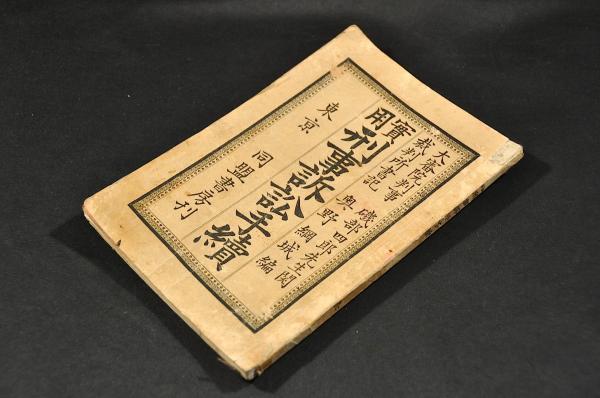 大審院判事 磯部四郎先生閲
裁判所書記 奥野綱城編
實用刑事訴訟手續
東京 同盟書房刊